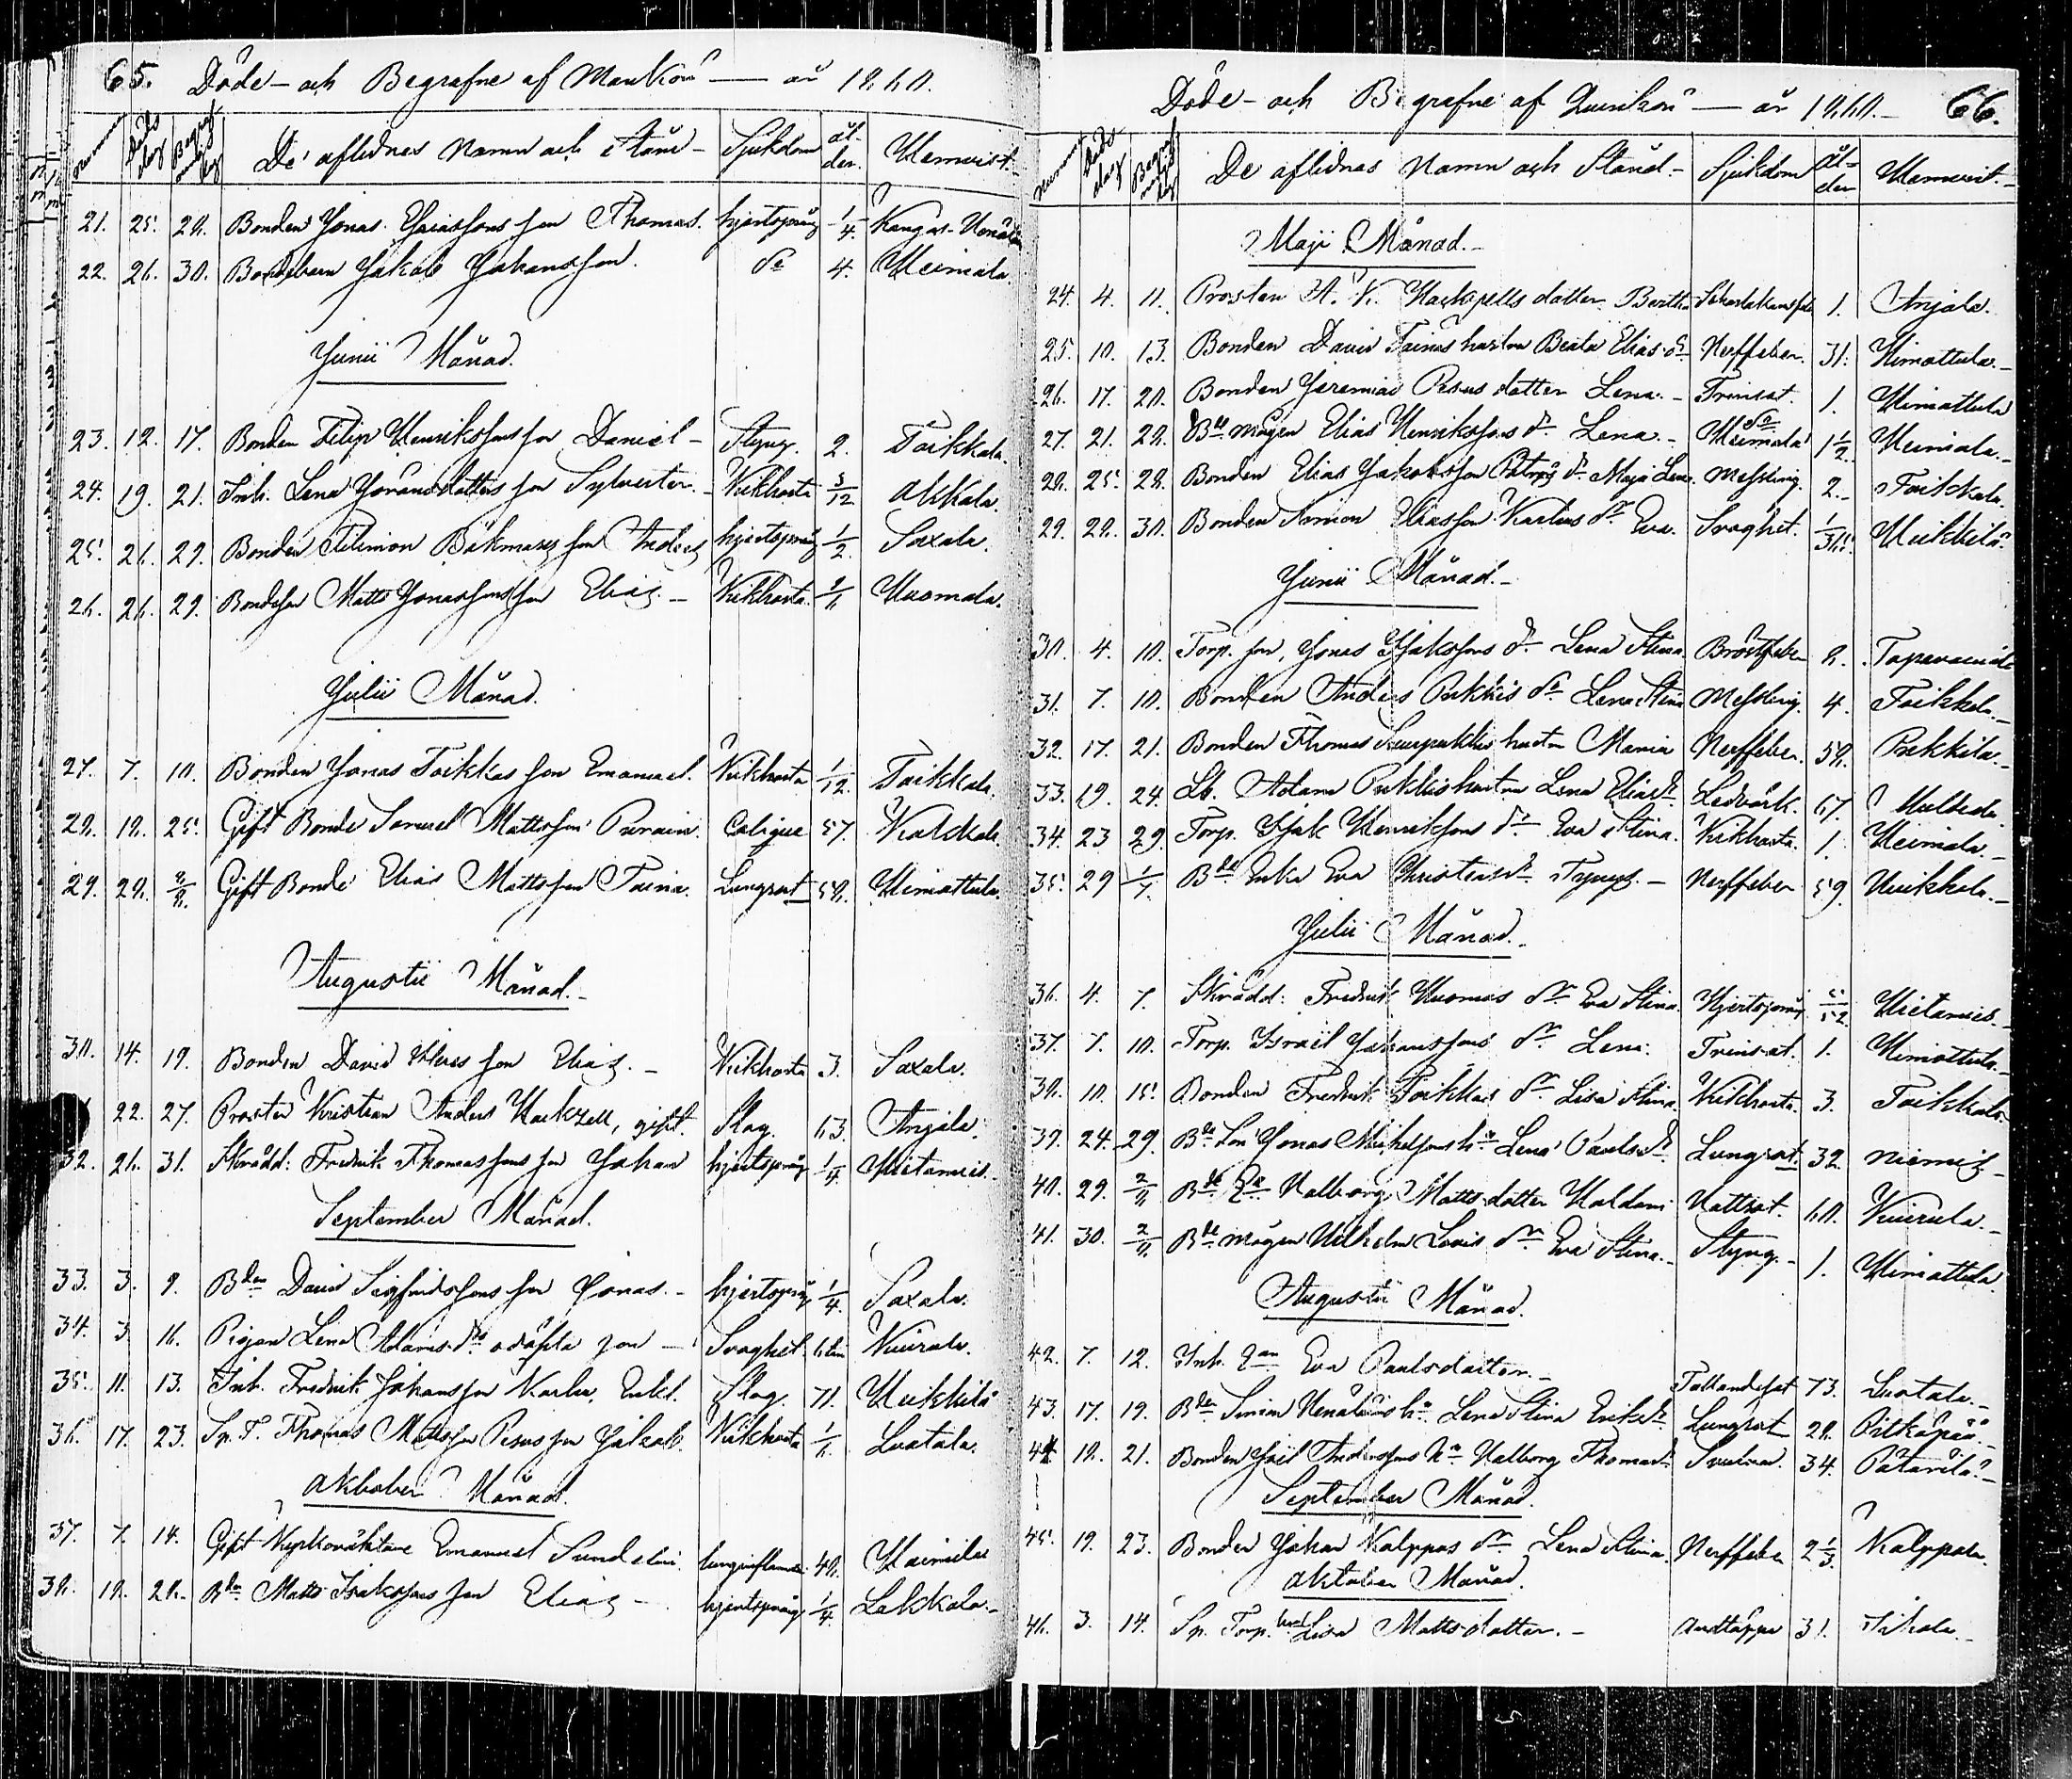 65. Döde- och Begrafne af Mankön — år 1860.
Nummer Döds dag Begrafnings dag De aflidnas Namn och Stånd Sjukdom ålder. Hemvist.
21. 25. 28. Bonden Jonas son Thomas. hjertsprång 1/4.
22. 26. 30. Bondebarn Jakob Johansson. do 4. Heimala.
Junii Månad.
23. 12. 17. Bonden Filip Henrikssons son Daniel Styng. 2. Toikkala.
24. 19. 21. Inh. Lena Göransdotters son Sylvester. Kikhosta 3/12 Akkala.
25. 26. 29. Bonden Filemon Båkmans son Anders hjertsprång 1/2. Saxala.
26. 26. 29. Bondeson Matts Jonassons son Elias. Kikhosta Huomala.
Julii Månad.
27. 7. 10. Bonden Jonas Toikkas son Emanuel. Kikhosta 1/12. Toikkala.
28. 18. 25. Gift Bonde Samuel Mattsson Colique 57.
29. 28. 2/8. Gift Bonde Elias Mattsson Taina. Lungsot 58. Himottula.
Augusti Månad.
30. 14. 19. Bonden David son Elias. Kikhosta 3. Saxala.
22. 27. Prosten Kristian Anders Hackzell, gift. Slag. 63. Anjala.
32. 26. 31. Skrädd: Fredrik Thomassons son Johan hjertsprång 1/4. Hietanies.
September Månad.
33. 3. 9. Bden David Sigfridssons son Jonas. hjertsprång 1/4. Saxala.
34. 3. 16. Pigan Lena Adamsdrs odöpta son Svaghet. 6 tim Kuirala.
35. 11. 13. Inh. Fredrik Johansson Enkl. Slag. 71. Heikkilä
36. 17. 23. Sp. T. Thomas Mattsson Pesus son Jakob. Kikhosta 1/6. Luotala.
Oktober Månad.
37. 7. 14. Gift Kyrkoväktare Emanuel Sundelin. lunginflamm. 48. Haimila
38. 18. 28. Bdn Matts Isakssons son Elias hjertsprång 1/4. Lakkala.
Döde- och Begrafne af Qvinkön — år 1860. 66.
Nummer Döds dag Begrafnings dag De aflidnas Namn och Stånd. Sjukdom ålder Hemvist.
Maji Månad.
24. 4. 11. Prosten A. K. Hackzells dotter Bertha 1. Anjala.
25. 10. 13. Bonden David Tainas hustru Beata Eliasdr Nerffeber. 31. Himottula.
26. 17. 20. Bonden Jeremias Pesus dotter Lena. Trinsot. 1. Himottula
27. 21. 28. Bde mågen Elias Henrikssons dr Lena. do 1 1/2 Heimala.
28. 25. 28. Bonden Elias Jakobsson dr Maja Lena. Messling. 2. Toikkala.
29. 28. 30. Bonden Simon Eliasson dr Eva. Svaghet. 1/365. Heikkilä.
Junii Månad.
30. 4. 10. Torp. son, Jonas Isakssons dr Lena Stina. Bröstfeber 8.
31. 7. 10. Bonden Anders Pekkis dr Lena Stina Messling. 4. Toikkala.
32. 17. 21. Bonden Thomas hustru Maria Nerffeber. 58. Pekkila.
33. 19. 24. Lb. Adam Pukkis hustru Lena Eliasdr Ledvärk. 67.
34. 23 29. Torp. Isak Henrikssons dr Eva Stina. Kikhosta. 1. Heimala.
35. 29 1/7. Bde Enka Eva Christersdr Nerffeber 59.
Julii Månad.
36. 4. 7. Skrädd: Fredrik Huomas dr Eva Stina. Hjertsprång 5/52. Hietanies.
37. 7. 10. Torp. Israel Johanssons dr Lena. Trinsot. 1. Himottula.
38. 10. 15. Bonden Fredrik Toikkas dr Lisa Stina. Kikhosta. 3. Toikkala.
39. 24. 29. Bde Son Jonas Mickelssons ha Lena Paulsdr. Lungsot. 32. Niemis
40. 29. 2/8 Bde Valborg Mattsdotter Haldani Vattsot. 60. Kuirula.
41. 30. 2/8 Bde mågen Wilhelm Lovis dr Eva Stina. Styng. 1. Himottula.
Augusti Månad.
42. 7. 12. Inh. Eva Paulsdotter. Fallandesot 73. Luotala.
43. 17. 19. Bden Simon Henälains ha Lena Stina Eriksdr Lungsot 28. Pitkäpää.
44. 18. 21. Bonden Anderssons ha Valborg Thomasdr 34.
September Månad.
45. 19. 23. Bonden Johan Kalppas dr Lena Stina. Nerffeber 2 1/3 Kalppala.
Oktober Månad.
46. 3. 14. Sp. Torp. Lisa Mattsdotter. Andtäppa 31.